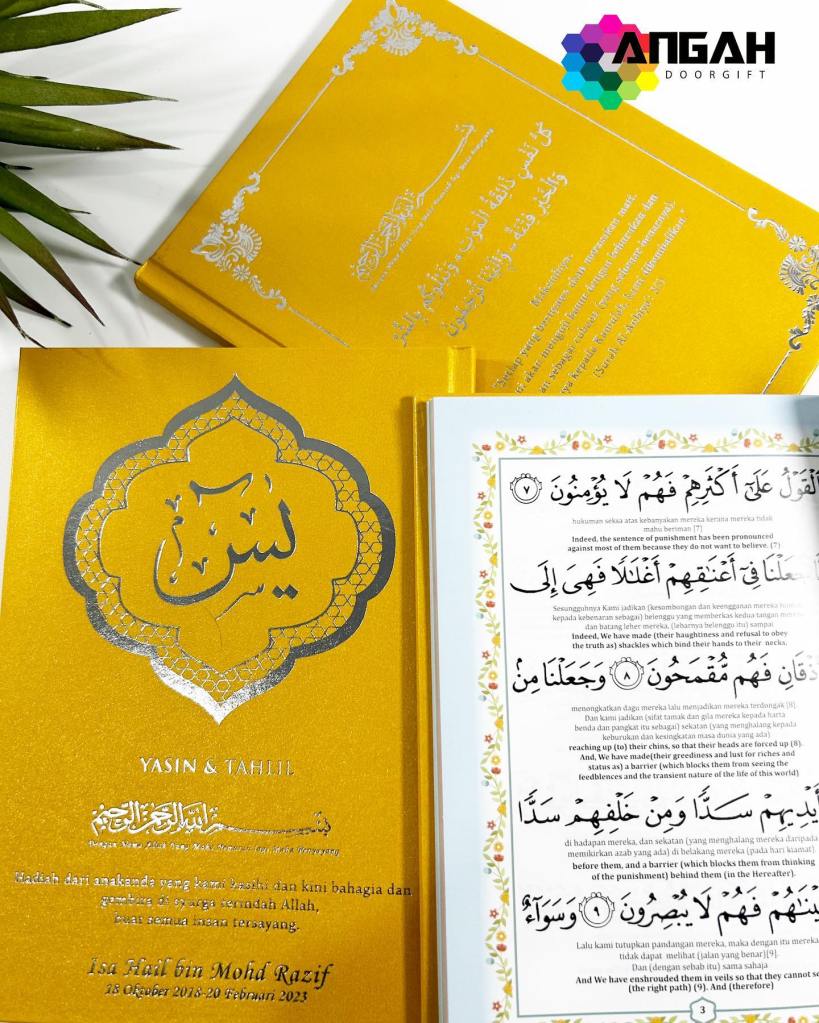 ANGAH
DOORGIFT
كُلُّ نَفْسٍ ذَائِقَةُ الْمَوْتِ ۗ وَنَبْلُوكُم بِالشَّرِّ
وَالْخَيْرِ فِتْنَةً ۖ وَإِلَيْنَا تُرْجَعُونَ
"Setiap yang bernyawa akan merasakan mati.
akan menguji kamu dengan keburukan dan
sebagai cubaan (yang sebenar-benarnya).
kepada Kamilah, kamu dikembalikan."
(Surah Al-Anbiya': 35)
يسٓ
YASIN & TAHLIL
بسم الله الرحمن الرحيم
Dengan Nama Allah Yang Maha Pemurah Lagi Maha Penyayang
Hadiah dari anakanda yang kami kasihi dan kini bahagia dan
gembira di syurga terindah Allah,
buat semua insan tersayang.
Isa Hail bin Mohd Razif
18 Oktober 2018-20 Februari 2023
ٱلْقَوْلُ عَلَىٰٓ أَكْثَرِهِمْ فَهُمْ لَا يُؤْمِنُونَ ٧
hukuman seksa atas kebanyakan mereka kerana mereka tidak
mahu beriman [7]
Indeed, the sentence of punishment has been pronounced
against most of them because they do not want to believe. (7)
جَعَلْنَا فِىٓ أَعْنَٰقِهِمْ أَغْلَٰلًا فَهِىَ إِلَى
Sesungguhnya Kami jadikan (kesombongan dan keengganan mereka
kepada kebenaran sebagai) belenggu yang memberkas kedua tangan
dan batang leher mereka, (lebarnya belenggu itu) sampai
Indeed, We have made (their haughtiness and refusal to obey
the truth as) shackles which bind their hands to their necks,
ٱلْأَذْقَانِ فَهُم مُّقْمَحُونَ ٨ وَجَعَلْنَا مِنۢ
menongkatkan dagu mereka lalu menjadikan mereka terdongak [8].
Dan Kami jadikan (sifat tamak dan gila mereka kepada harta
benda dan pangkat itu sebagai) sekatan (yang menghalang kepada
keburukan dan kesingkatan masa dunia yang ada)
reaching up (to) their chins, so that their heads are forced up (8).
And, We have made(their greediness and lust for riches and
status as) a barrier (which blocks them from seeing the
feedblences and the transient nature of the life of this world)
أَيْدِيهِمْ سَدًّا وَمِنْ خَلْفِهِمْ سَدًّا
di hadapan mereka, dan sekatan (yang menghalang mereka daripada
memikirkan azab yang ada) di belakang mereka (pada hari kiamat).
before them, and a barrier (which blocks them from thinking
of the punishment) behind them (in the Hereafter).
فَأَغْشَيْنَٰهُمْ فَهُمْ لَا يُبْصِرُونَ ٩ وَسَوَآءٌ
Lalu kami tutupkan pandangan mereka, maka dengan itu mereka
tidak dapat melihat (jalan yang benar)[9].
Dan (dengan sebab itu) sama sahaja
And We have enshrouded them in veils so that they cannot see
(the right path) (9). And (therefore)
3